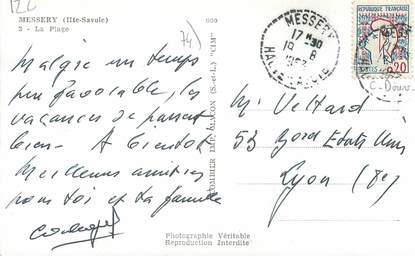 122
MESSERY (Hte-Savoie)
2 - La Plage
999
74)
MESSERY
17 H30
19 - 8
HAUTE-SAVOIE
REPUBLIQUE FRANÇAISE
0,20
C-Douv.
Malgré un temps
peu favorable, les
vacances se passent
bien. A bientôt
Meilleures amitiés
pour toi et ta famille
COMBIER IMP. MACON (S.-et-L.) "CIM"
M. Vettard
53 Bord Etats Unis
Lyon (8e)
Photographie Véritable
Reproduction Interdite